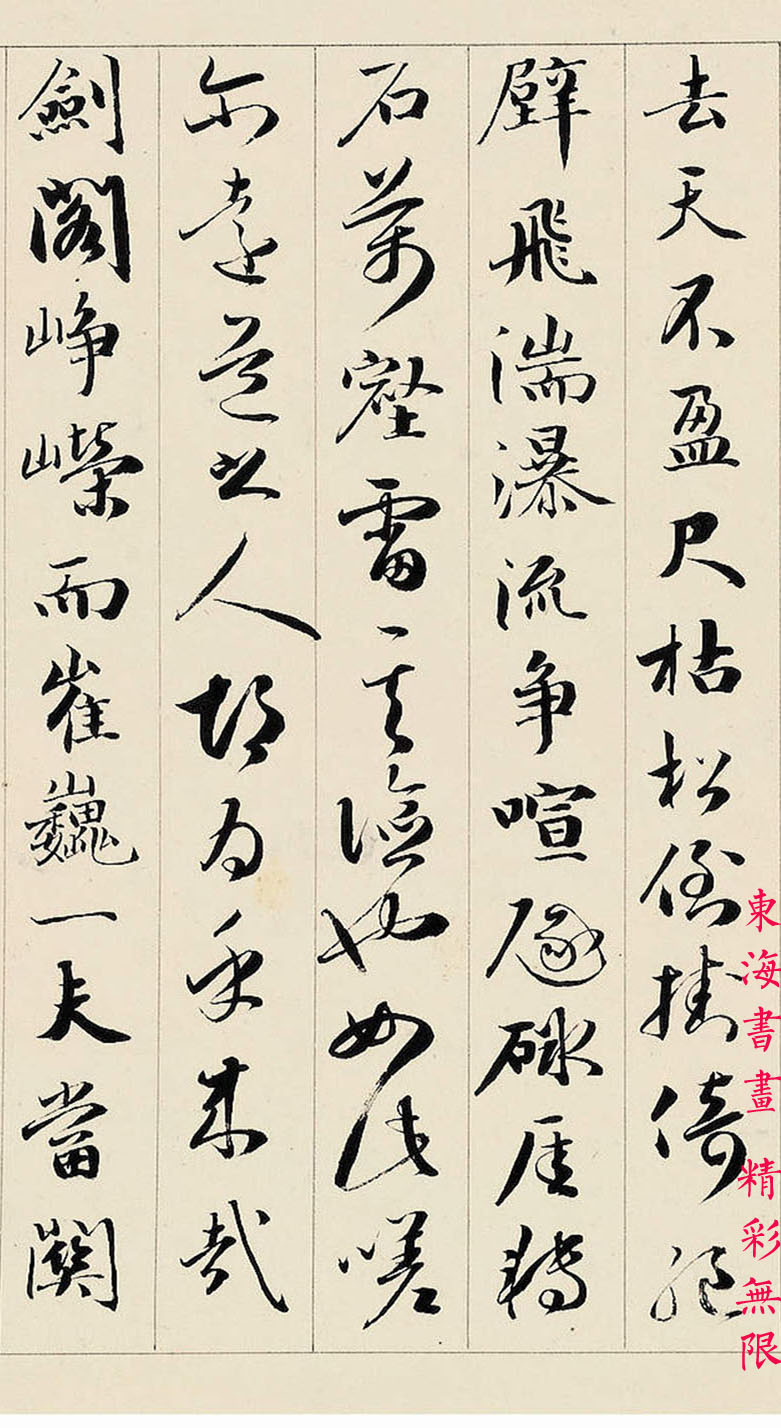 去天不盈尺枯松倒掛倚絕
壁飛湍瀑流争喧豗砯厓轉
石萬壑雷其險也如此嗟
尒遠道之人胡為乎來哉
劍閣峥嶸而崔巍一夫當關
東海書畫 精彩無限